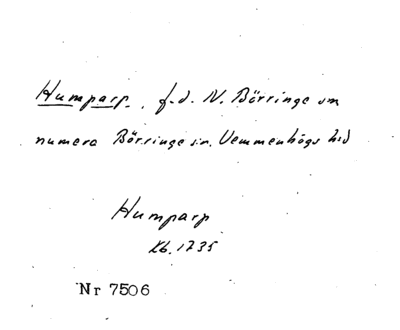 Humparp. f.d. N. Börringe sn
numera Börringe sn. Vemmenhögs hd
Humparp
Kb. 1735
Nr 7506